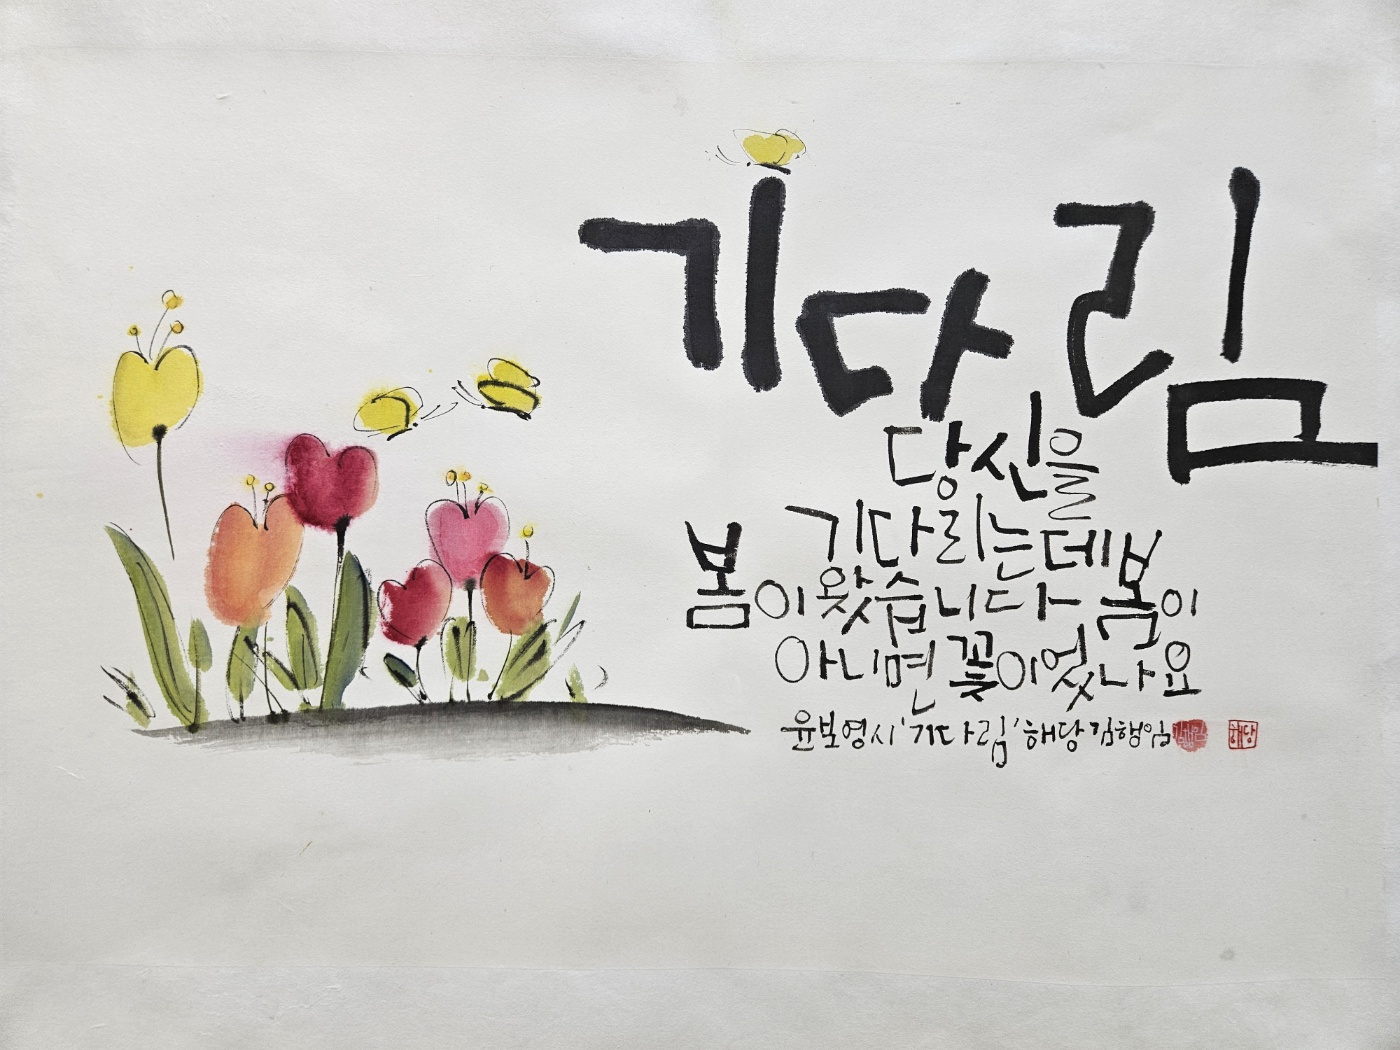 기다림
당신을
기다리는데
봄이 왔습니다 봄이
아니면 꽃이었나요
윤보영시 '기다림' 해당 김행임
해당